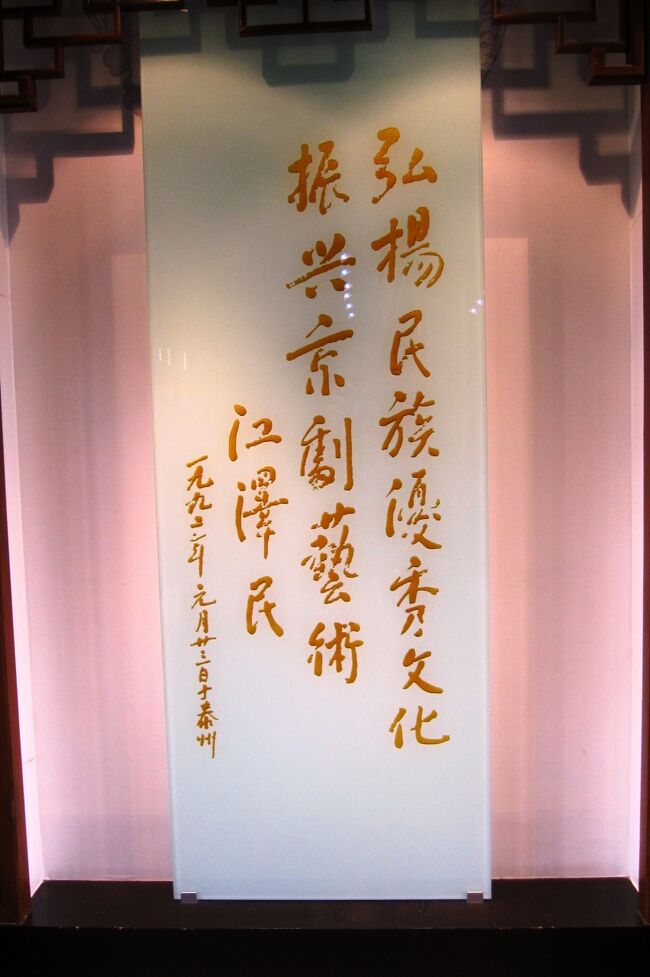 弘揚民族優秀文化
振兴京劇藝術
江澤民
一九九二年元月廿三日于泰州